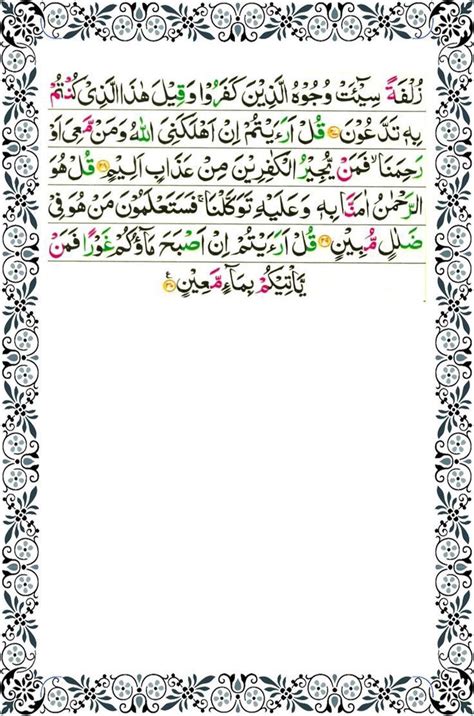 زُلْفَةً سِیْٓـَٔتْ وُجُوْهُ الَّذِیْنَ كَفَرُوْا وَقِیْلَ هٰذَا الَّذِیْ كُنْتُمْ
بِهٖ تَدَّعُوْنَ ۝۲۷ قُلْ اَرَءَیْتُمْ اِنْ اَهْلَكَنِیَ اللّٰهُ وَمَنْ مَّعِیَ اَوْ
رَحِمَنَا ۙ فَمَنْ یُّجِیْرُ الْكٰفِرِیْنَ مِنْ عَذَابٍ اَلِیْمٍ ۝۲۸ قُلْ هُوَ
الرَّحْمٰنُ اٰمَنَّا بِهٖ وَعَلَیْهِ تَوَكَّلْنَا ۚ فَسَتَعْلَمُوْنَ مَنْ هُوَ فِیْ
ضَلٰلٍ مُّبِیْنٍ ۝۲۹ قُلْ اَرَءَیْتُمْ اِنْ اَصْبَحَ مَآؤُكُمْ غَوْرًا فَمَنْ
یَّاْتِیْكُمْ بِمَآءٍ مَّعِیْنٍ ۝۳۰ ع